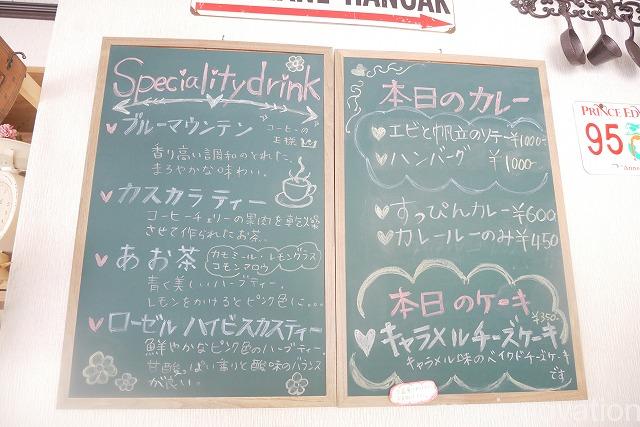 HANOAK
Speciality drink
ブルーマウンテン
"コーヒーの
王様"
香り高い調和のとれた、
まろやかな味わい。
カスカラティー
コーヒーチェリーの果肉を乾燥
させて作られたお茶。
あお茶
カモミール・レモングラス
コモンマロウ
青く美しいハーブティー。
レモンをかけるとピンク色に...
ローゼルハイビスカスティー
鮮やかなピンク色のハーブティー。
甘酸っぱい香りと酸味のバランス
が良い。
本日のカレー
エビと帆立のソテー ¥1000-
ハンバーグ ¥1000-
すっぴんカレー ¥600-
カレールーのみ ¥450
本日のケーキ
¥350-
キャラメルチーズケーキ
キャラメル味のベイクドチーズケーキ
です
PRINCE ED
95
Anne